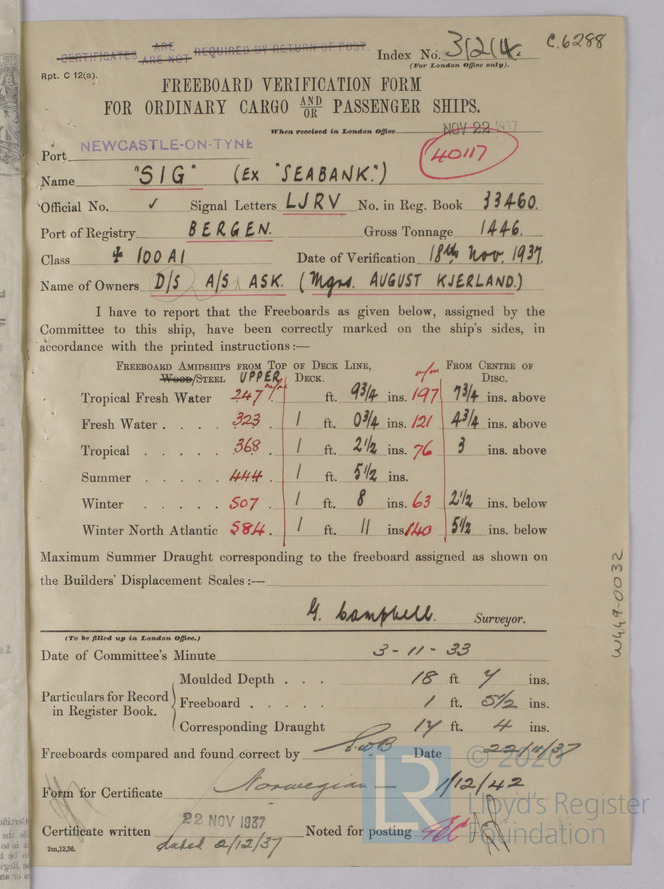 CERTIFICATES ARE / ARE NOT REQUIRED BY RETURN OF POST.
Index No. 3121k. C.6288
(For London Office only).
Rpt. C 12(a).
FREEBOARD VERIFICATION FORM
FOR ORDINARY CARGO AND/OR PASSENGER SHIPS.
When received in London Office NOV 22 1937
Port NEWCASTLE-ON-TYNE
40117
Name "SIG" (Ex "SEABANK.")
Official No. ✓ Signal Letters LJRV No. in Reg. Book 33460.
Port of Registry BERGEN. Gross Tonnage 1446.
Class + 100 A1 Date of Verification 18th Nov. 1937.
Name of Owners D/S A/S ASK. (Mgrs. AUGUST KJERLAND.)
I have to report that the Freeboards as given below, assigned by the
Committee to this ship, have been correctly marked on the ship's sides, in
accordance with the printed instructions:—
FREEBOARD AMIDSHIPS FROM TOP OF DECK LINE, m/m FROM CENTRE OF
WOOD/STEEL UPPER DECK. DISC.
m/m
Tropical Fresh Water 247. ft. 9 3/4 ins. 197 7 3/4 ins. above
Fresh Water 323. 1 ft. 0 3/4 ins. 121 4 3/4 ins. above
Tropical 368. 1 ft. 2 1/2 ins. 76 3 ins. above
Summer 444. 1 ft. 5 1/2 ins.
Winter 507. 1 ft. 8 ins. 63 2 1/2 ins. below
Winter North Atlantic 584. 1 ft. 11 ins. 140 5 1/2 ins. below
Maximum Summer Draught corresponding to the freeboard assigned as shown on
the Builders' Displacement Scales:—
G. Campbell. Surveyor.
W449-0032
(To be filled up in London Office.)
Date of Committee's Minute 3-11-33
Particulars for Record in Register Book.
Moulded Depth . . . 18 ft 7 ins.
Freeboard . . . . . 1 ft. 5 1/2 ins.
Corresponding Draught 17 ft. 4 ins.
Freeboards compared and found correct by Date 22/11/37
Form for Certificate Norwegian — 1/12/42
Certificate written 22 NOV 1937 Noted for posting
dated 2/12/37
2m,12,36.
LR © 2020
Lloyd's Register
Foundation